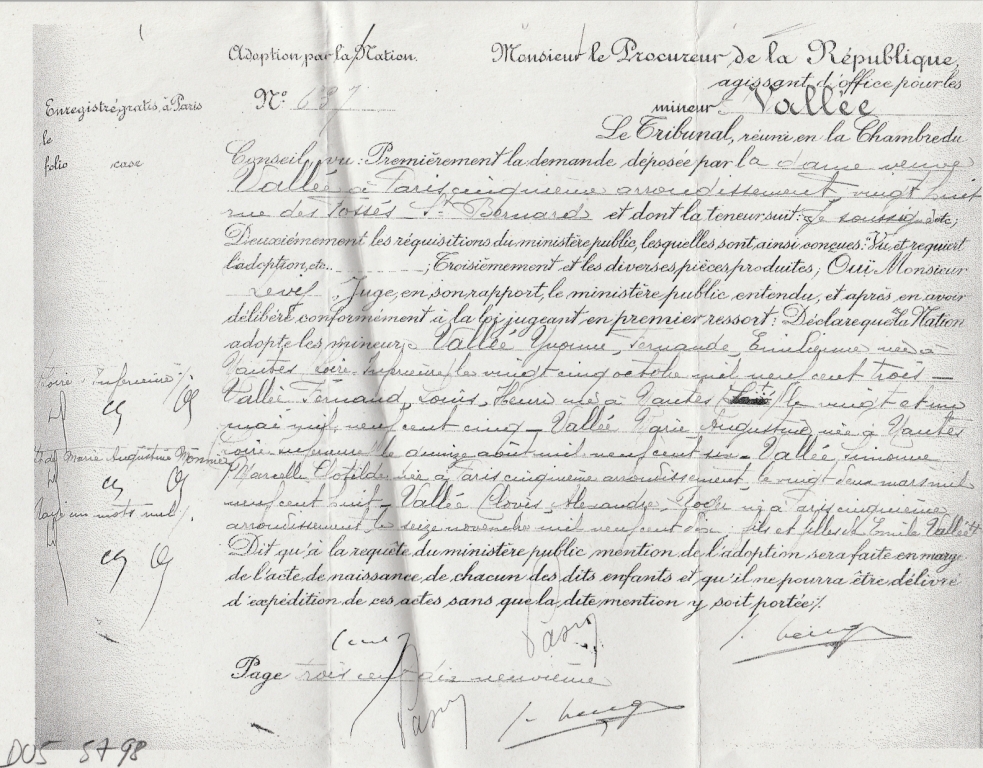 Adoption par la Nation.
Monsieur le Procureur de la République,
agissant d'office pour les
mineurs Vallée
N° 
Enregistré gratis, à Paris
le
folio case
Le Tribunal, réuni en la Chambre du
Conseil, vu: Premièrement la demande déposée par la dame veuve
Vallée à Paris cinquième arrondissement, vingt huit
rue des Fossés St Bernard et dont la teneur suit: Je soussignée etc;
Deuxièmement les réquisitions du ministère public, lesquelles sont ainsi conçues: "Vu et requiert
l'adoption, etc.. ; Troisièmement et les diverses pièces produites; Ouï Monsieur
Juge, en son rapport, le ministère public entendu, et après en avoir
délibéré conformément à la loi jugeant en premier ressort: Déclare que La Nation
adopte les mineurs: Vallée Yvonne, Fernande, Emilienne née à
Nantes Loire-Inférieure le vingt cinq octobre mil neuf cent trois —
Vallée Fernand, Louis, Henri né à Nantes le vingt et un
mai mil neuf cent cinq — Vallée Marie Augustine née à Nantes
Loire-Inférieure le quinze août mil neuf cent six — Vallée Simone
Marcelle Clotilde née à Paris cinquième arrondissement, le vingt deux mars mil
neuf cent huit — Vallée Clovis Alexandre né à Paris cinquième
arrondissement le seize novembre mil neuf cent dix fils et filles de Emile Vallée
Loire Inférieure /.
et de Marie Augustine Monnier
Rayé un mots nul /.
Dit qu'à la requête du ministère public mention de l'adoption sera faite en marge
de l'acte de naissance de chacun des dits enfants et qu'il ne pourra être délivré
d'expédition de ces actes sans que la dite mention y soit portée /.
Page trois cent dix neuvième
DOS 5798